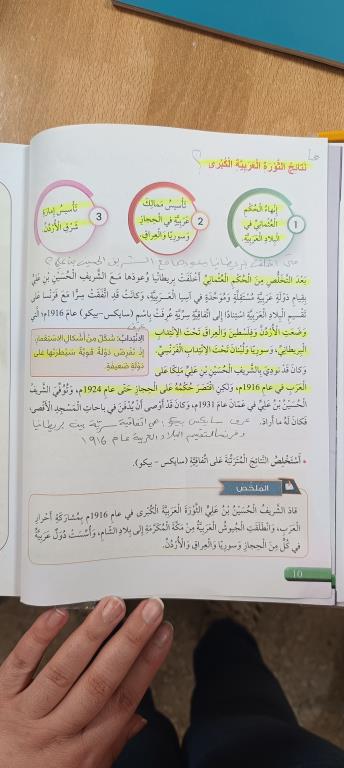 ما
نَتائِجُ الثَّوْرَةِ العَرَبِيَّةِ الكُبْرى ؟
1
إنْهاءُ الحُكْمِ
العُثْمانِيِّ في
البِلادِ العَرَبِيَّةِ.
2
تَأْسيسُ مَمالِكَ
عَرَبِيَّةٍ في الحِجازِ
وَسوريّا وَالعِراقِ.
3
تَأْسيسُ إمارَةِ
شَرْقِ الأُرْدُنِّ.
بريطانيا بوعودها مع الشريف الحسين بن علي ؟
بَعْدَ التَّخَلُّصِ مِنَ الحُكْمِ العُثْمانِيِّ أَخْلَفَتْ بَريطانْيا وُعودَها مَعَ الشَّريفِ الحُسَيْنِ بْنِ عَلِيٍّ
بِقِيامِ دَوْلَةٍ عَرَبِيَّةٍ مُسْتَقِلَّةٍ وَمُوَحَّدَةٍ في آسيا العَرَبِيَّةِ، وَكانَتْ قَدِ اتَّفَقَتْ سِرًّا مَعَ فَرَنْسا عَلى
تَقْسيمِ البِلادِ العَرَبِيَّةِ اسْتِنادًا إلى اتِّفاقِيَّةٍ سِرِّيَّةٍ عُرِفَتْ بِاسْمِ (سايكس-بيكو) عامَ 1916م؛ الَّتي
وَضَعَتِ الأُرْدُنَّ وَفِلَسْطينَ وَالعِراقَ تَحْتَ الِانْتِدابِ
البَريطانِيِّ، وَسوريّا وَلُبْنانَ تَحْتَ الِانْتِدابِ الفَرَنْسِيِّ.
وَكانَ قَدْ نودِيَ بِالشَّريفِ الحُسَيْنِ بْنِ عَلِيٍّ مَلِكًا عَلى
عرف
الِانْتِدابُ: شَكْلٌ مِنْ أَشْكالِ الِاسْتِعْمارِ،
إذْ تَفْرِضُ دَوْلَةٌ قَوِيَّةٌ سَيْطَرَتَها عَلى
دَوْلَةٍ ضَعيفَةٍ.
العَرَبِ في عامِ 1916م، وَلكِنِ اقْتَصَرَ حُكْمُهُ عَلى الحِجازِ حَتّى عامِ 1924م، وَتُوُفِّيَ الشَّريفُ
الحُسَيْنُ بْنُ عَلِيٍّ في عَمّانَ عامَ 1931م، وَكانَ قَدْ أَوْصى أَنْ يُدْفَنَ في باحاتِ المَسْجِدِ الأَقْصى،
فَكانَ لَهُ ما أَرادَ.
عرف سايكس بيكو: هي اتفاقية سرية بين بريطانيا
وفرنسا لتقسيم البلاد العربية عام ١٩١٦
أَسْتَخْلِصُ النَّتائِجَ المُتَرَتِّبَةَ عَلى اتِّفاقِيَّةِ (سايكس - بيكو).
المُلَخَّصُ
قادَ الشَّريفُ الحُسَيْنُ بْنُ عَلِيٍّ الثَّوْرَةَ العَرَبِيَّةَ الكُبْرى في عامِ 1916م بِمُشارَكَةِ أَحْرارِ
العَرَبِ، وَانْطَلَقَتِ الجُيوشُ العَرَبِيَّةُ مِنْ مَكَّةَ المُكَرَّمَةِ إلى بِلادِ الشّامِ، وَأُسِّسَتْ دُوَلٌ عَرَبِيَّةٌ
في كُلٍّ مِنَ الحِجازِ وَسوريّا وَالعِراقِ، وَالأُرْدُنِّ.
10